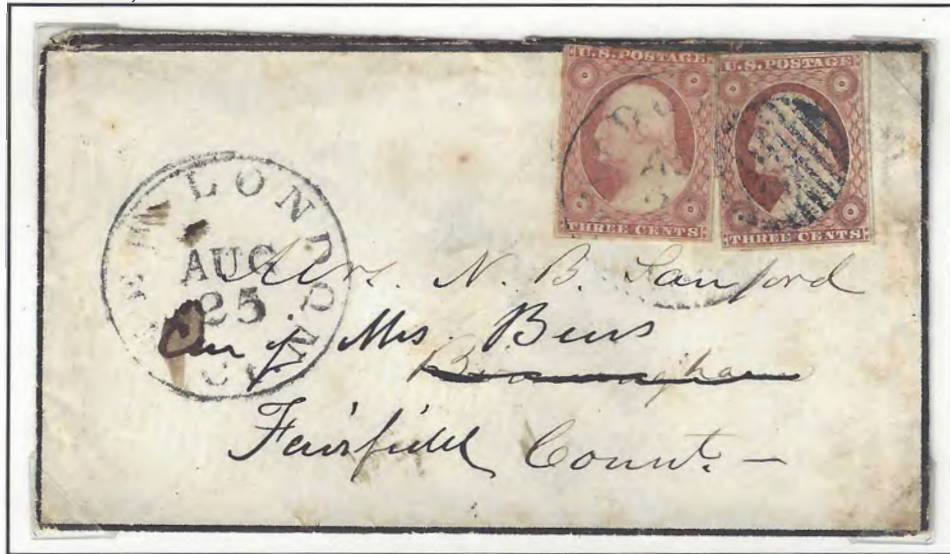 U.S. POSTAGE
THREE CENTS
U.S. POSTAGE
THREE CENTS
NEW LONDON CON
AUG
25
Mrs. N. B. Sanford
Care of Mrs Beers
Birmingham
Fairfield Connt. —